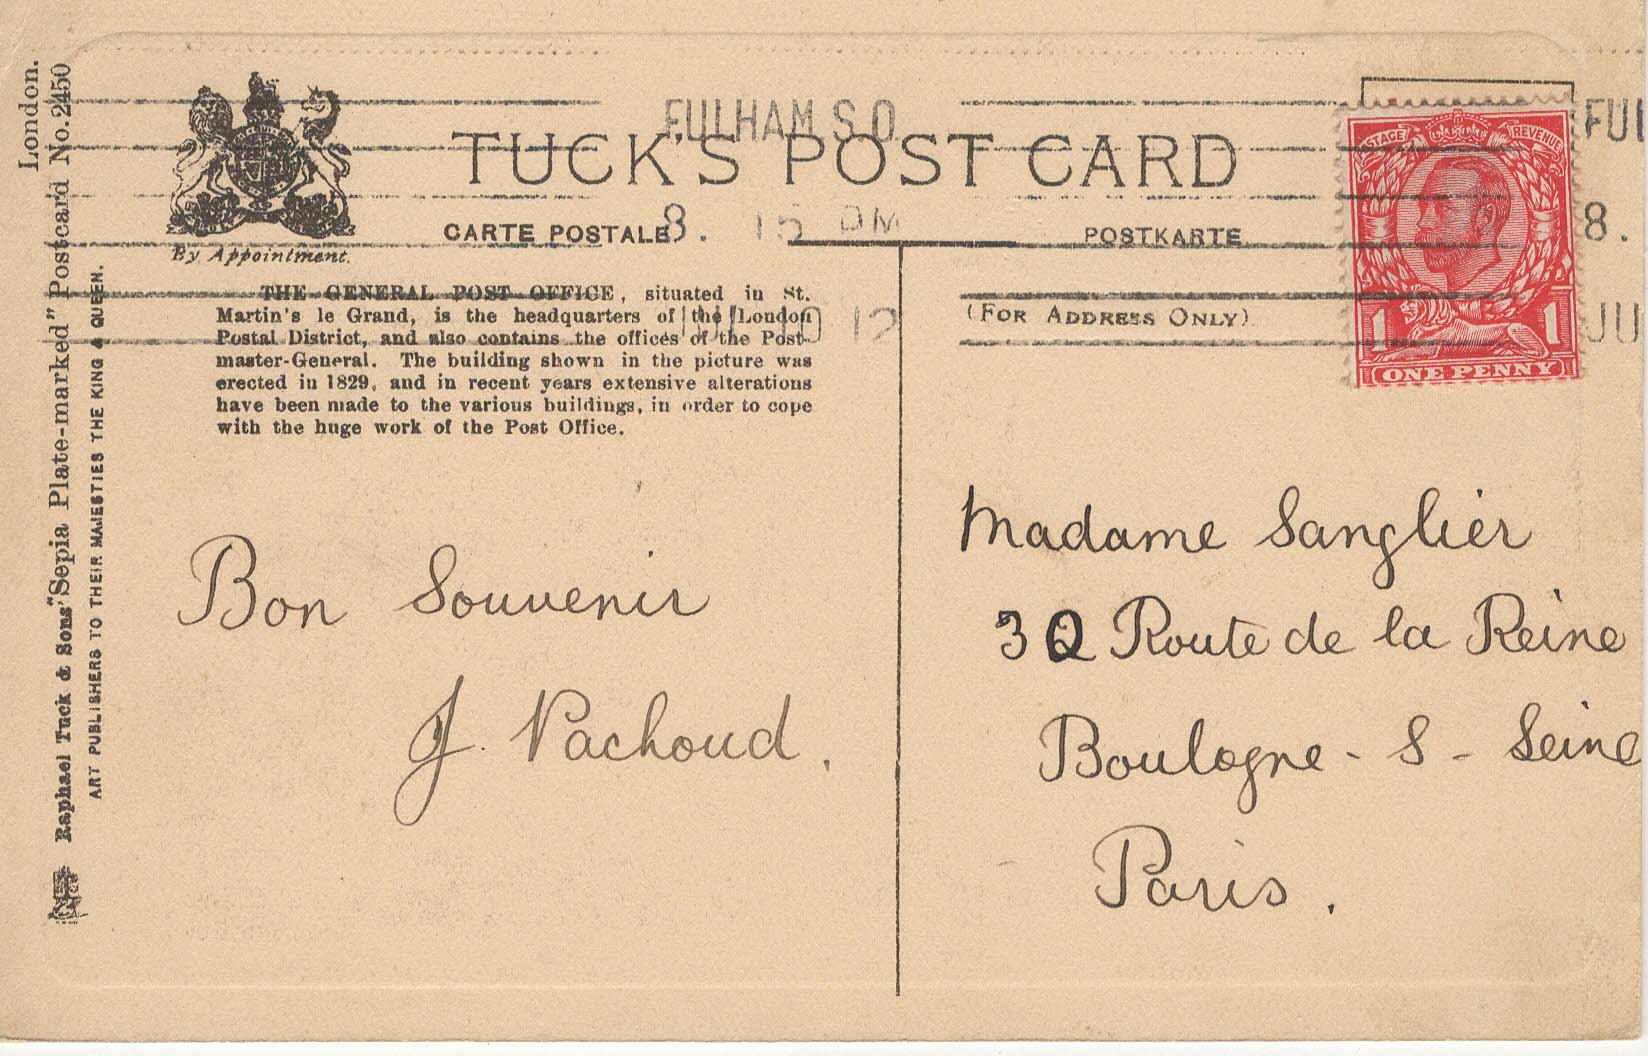 London.
Raphael Tuck & Sons' "Sepia Plate-marked" Postcard No. 2450
ART PUBLISHERS TO THEIR MAJESTIES THE KING & QUEEN.
FULHAM S.O.
TUCK'S POST CARD
CARTE POSTALE
POSTKARTE
8. 15 PM
12
By Appointment.
THE GENERAL POST OFFICE, situated in St.
Martin's le Grand, is the headquarters of the London
Postal District, and also contains the offices of the Post-
master-General. The building shown in the picture was
erected in 1829, and in recent years extensive alterations
have been made to the various buildings, in order to cope
with the huge work of the Post Office.
Bon Souvenir
J. Vachoud.
(FOR ADDRESS ONLY)
POSTAGE REVENUE
1 1
ONE PENNY
FUL
8.
JU
Madame Sanglier
32 Route de la Reine
Boulogne - S - Seine
Paris.